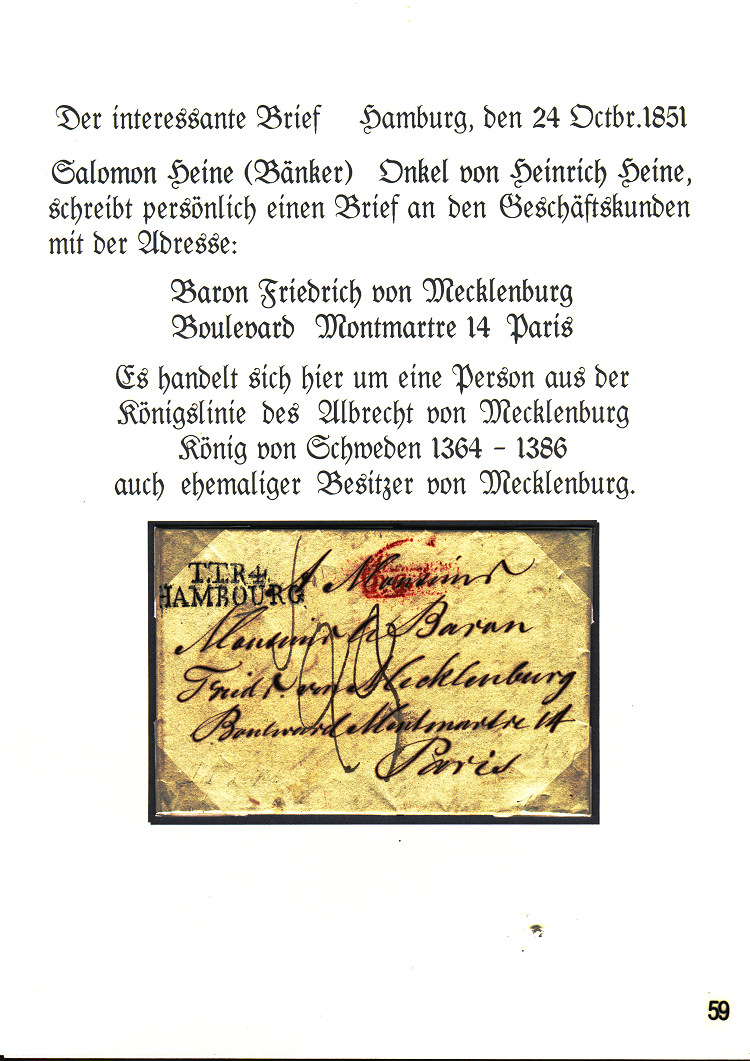 Der interessante Brief Hamburg, den 24 Octbr.1851
Salomon Heine (Bänker) Onkel von Heinrich Heine,
schreibt persönlich einen Brief an den Geschäftskunden
mit der Adresse:
Baron Friedrich von Mecklenburg
Boulevard Montmartre 14 Paris
Es handelt sich hier um eine Person aus der
Königslinie des Albrecht von Mecklenburg
König von Schweden 1364 - 1386
auch ehemaliger Besitzer von Mecklenburg.
T.T.R.4.
HAMBOURG
A Monsieur
Monsieur le Baron
Friedr. von Mecklenburg
Boulevard Montmartre 14
Paris
59